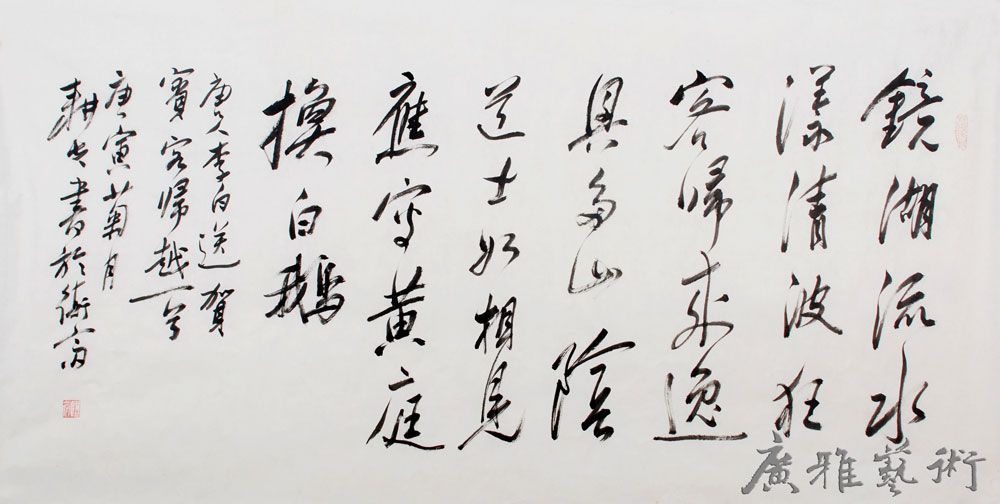 鏡湖流水
漾清波狂
客歸來逸
興多山陰
道士如相見
應寫黃庭
換白鵝
唐人李白送賀
賓客歸越一首
庚寅菊月
耕書於齋
廣雅藝術